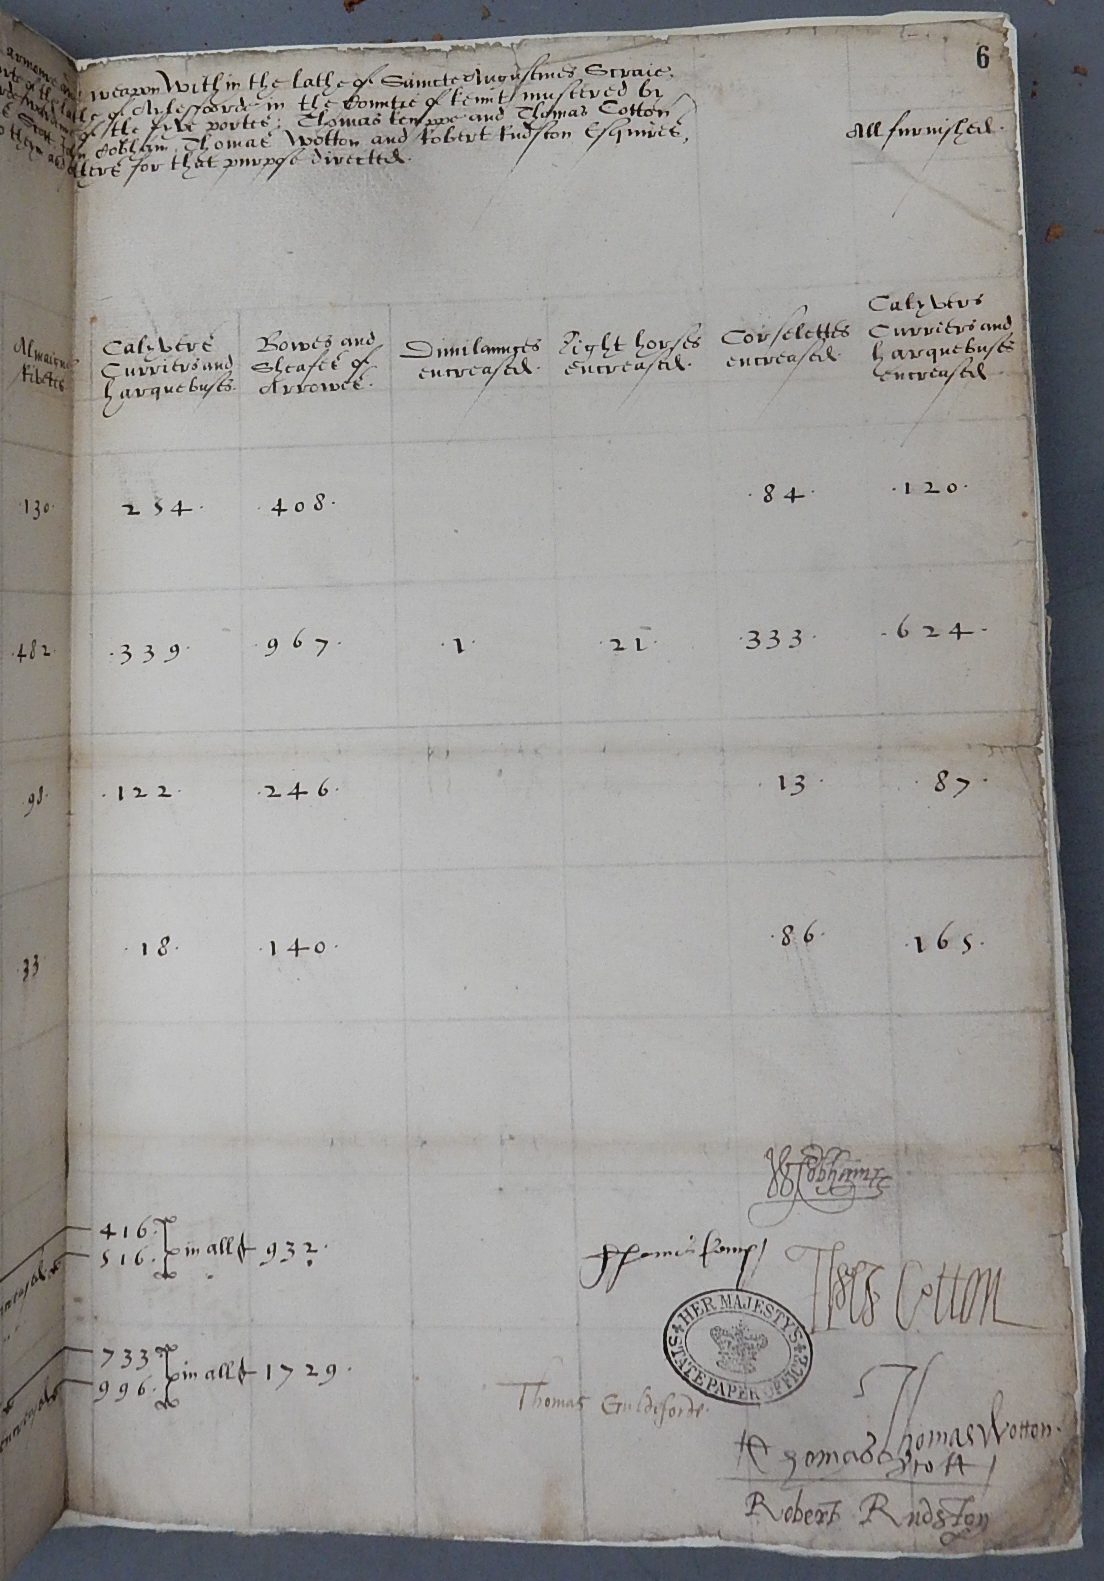 6
weapon within the lathe of Saincte Augustines Scraie,
of Ailefforde in the Countie of kennt mustered by
of the fyve portes; Thomas kemppe and Thomas Cotton
Cobham, Thomas Wotton and Robert Rudston Esquires,
for that purpose directed.
All furnished.
Almaigne
Rivetts
Calyvers
Curriers and
harquebuses.
Bowes and
Sheafes of
Arrowes.
Dimilaunces
encreased.
Light horses
encreased.
Corselettes
encreased.
Calyvers
Curriers and
harquebuses
encreased
·130· 254· ·408· ·84· ·120·
·482· ·339· ·967· ·1· ·21· ·333· ·624·
·98· ·122· ·246· ·13· ·87·
·33· ·18· ·140· ·86· ·165·
W Cobham
416·
516· in all 932·
Thomas kempe
Thos Cotton
HER MAJESTY'S
STATE PAPER OFFICE
733
996· in all 1729·
Thomas Guldeforde·
Thomas Wotton·
Thomas Scott
Robert Rudston